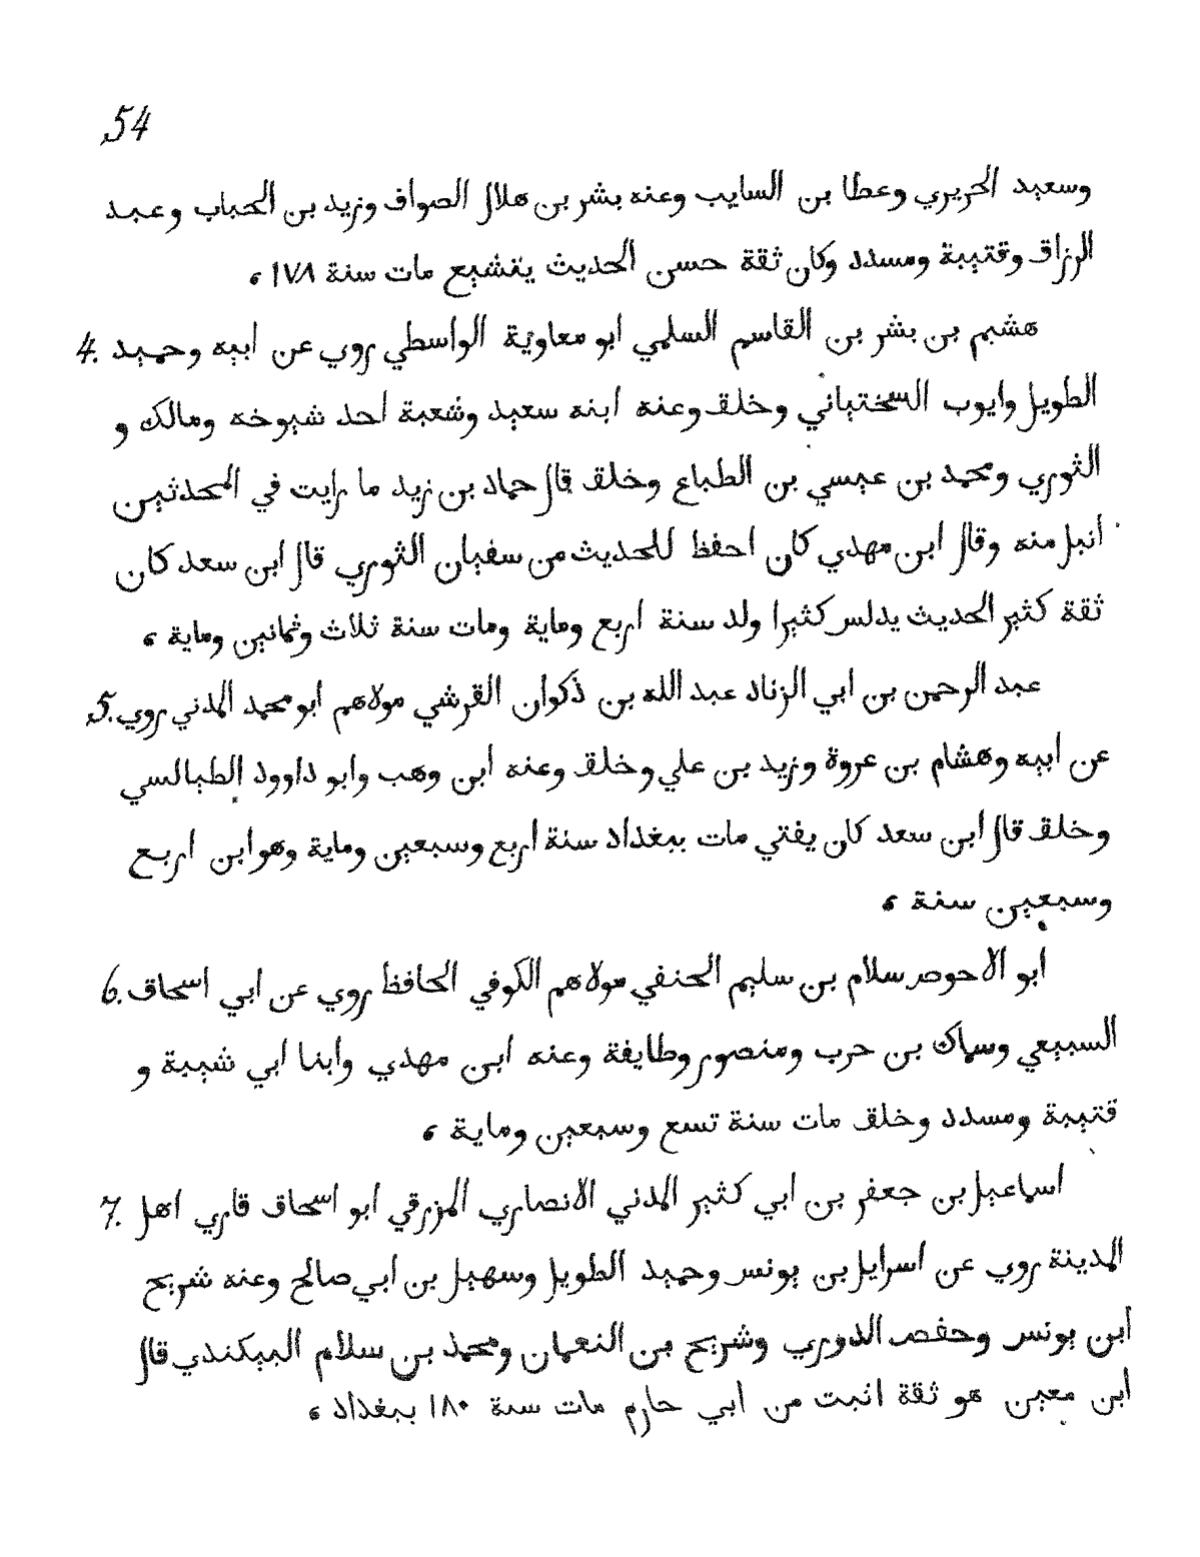 54
وسعيد الحريري وعطا بن السايب وعنه بشر بن هلال الصواف وزيد بن الحباب وعبد
الرزاق وقتيبة ومسدد وكان ثقة حسن الحديث يتشيع مات سنة ١٧٨ ،
4. هشيم بن بشر بن القاسم السلمي ابو معاوية الواسطي روي عن ابيه وحميد
الطويل وايوب السختياني وخلق وعنه ابنه سعيد وشعبة احد شيوخه ومالك و
الثوري ومحمد بن عيسي بن الطباع وخلق قال حماد بن زيد ما رايت في المحدثين
انبل منه وقال ابن مهدي كان احفظ للحديث من سفيان الثوري قال ابن سعد كان
ثقة كثير الحديث يدلس كثيرا ولد سنة اربع وماية ومات سنة ثلاث وثمانين وماية ،
5. عبد الرحمن بن ابي الزناد عبد الله بن ذكوان القرشي مولاهم ابو محمد المدني روي
عن ابيه وهشام بن عروة وزيد بن علي وخلق وعنه ابن وهب وابو داوود الطيالسي
وخلق قال ابن سعد كان يفتي مات ببغداد سنة اربع وسبعين وماية وهو ابن اربع
وسبعين سنة ،
6. ابو الاحوص سلام بن سليم الحنفي مولاهم الكوفي الحافظ روي عن ابي اسحاق
السبيعي وسماك بن حرب ومنصور وطايفة وعنه ابن مهدي وابنا ابي شيبة و
قتيبة ومسدد وخلق مات سنة تسع وسبعين وماية ،
7. اسماعيل بن جعفر بن ابي كثير المدني الانصاري المزرقي ابو اسحاق قاري اهل
المدينة روي عن اسرايل بن يونس وحميد الطويل وسهيل بن ابي صالح وعنه شريح
ابن يونس وحفص الدوري وشريح بن النعمان ومحمد بن سلام البيكندي قال
ابن معين هو ثقة اثبت من ابي حازم مات سنة ١٨٠ ببغداد ،